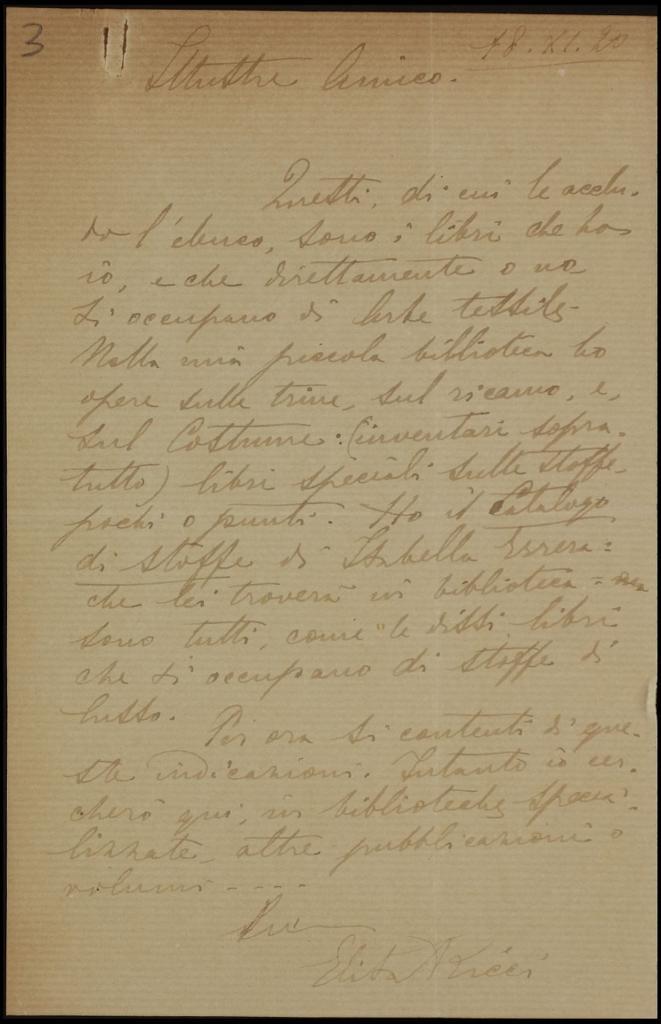 3
18.XI.20
Illustre Amico.
Questi, di cui le acclu-
do l'elenco, sono i libri che ho
io, e che direttamente o no
si occupano di Arte tessile-
Nella mia piccola biblioteca ho
opere sulle trine, sul ricamo, e,
sul Costume: (inventari sopra-
tutto) libri speciali sulle stoffe-
pochi o punti. Ho il Catalogo
di stoffe di Isabella Errera:
che lei troverà in biblioteca = ma
sono tutti, come le dissi libri
che si occupano di stoffe di
lusso.
Per ora si contenti di que-
ste indicazioni. Intanto io cer-
cherò qui, in biblioteche specia-
lizzate, altre pubblicazioni o
volumi - - - -
Elisa Ricci